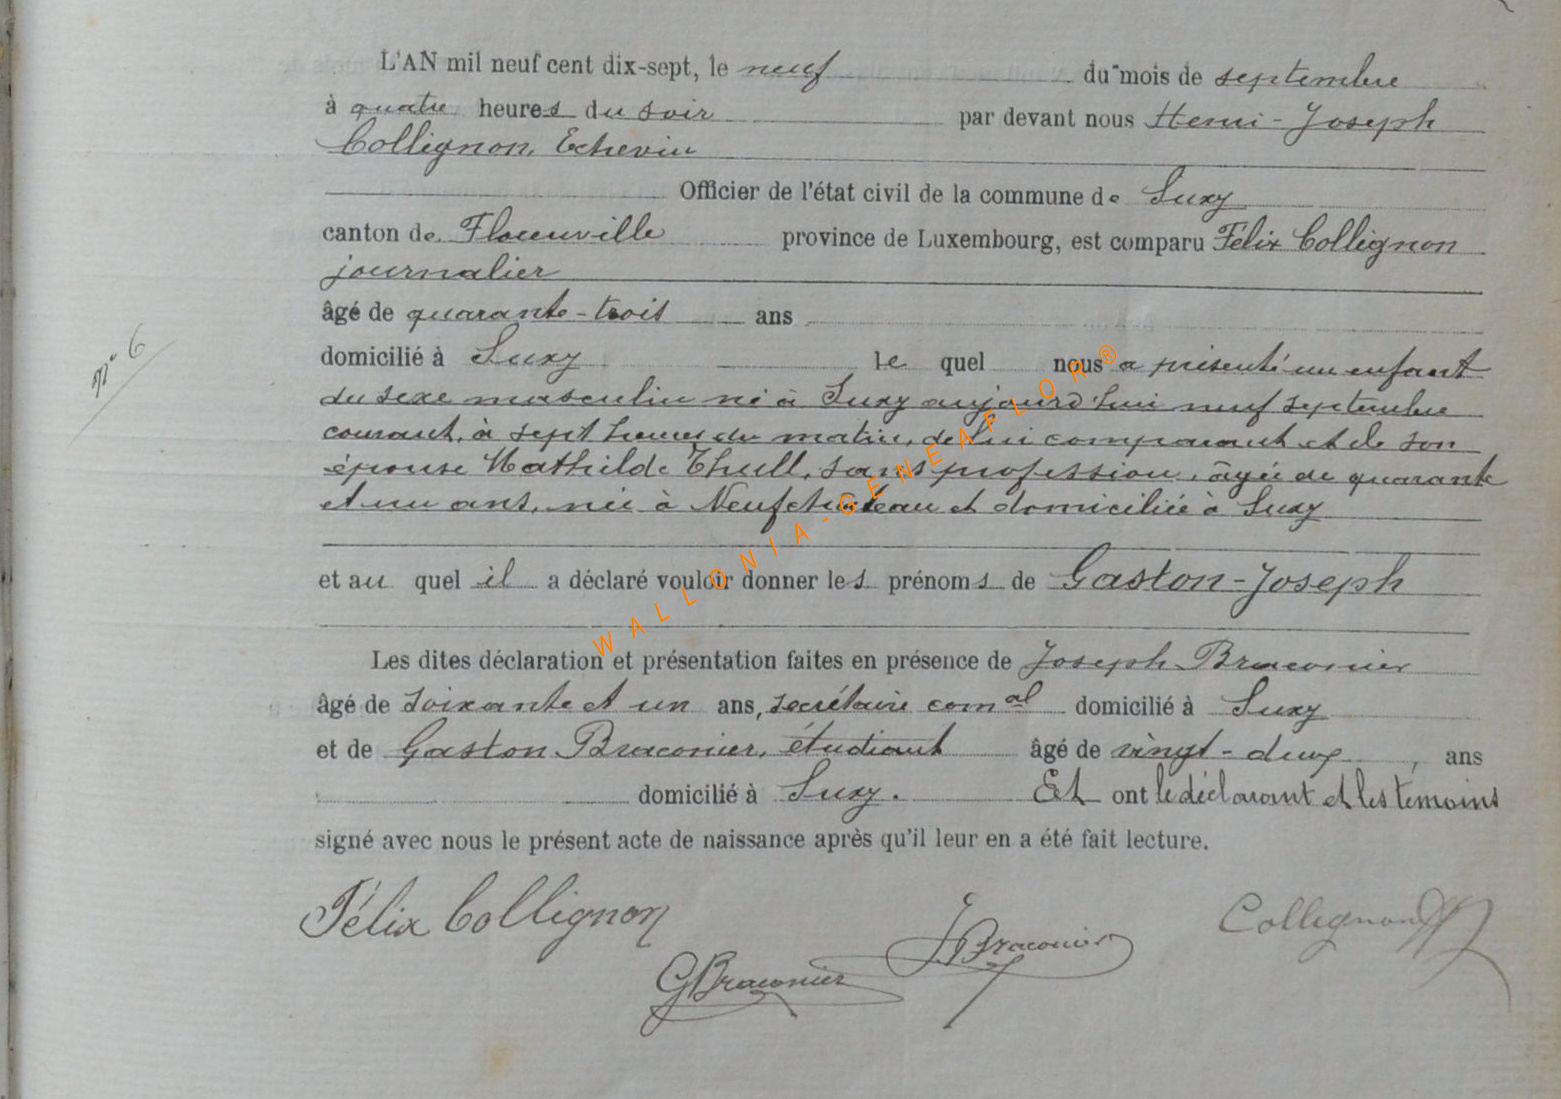 L'AN mil neuf cent dix-sept, le neuf du mois de septembre
à quatre heures du soir par devant nous Henri-Joseph
Collignon, Echevin
Officier de l'état civil de la commune de Suxy
canton de Florenville province de Luxembourg, est comparu Félix Collignon
journalier
âgé de quarante-trois ans
domicilié à Suxy le quel nous a présenté un enfant
du sexe masculin né à Suxy aujourd'hui neuf septembre
courant, à sept heures du matin, de lui comparant et de son
épouse Mathilde Thull, sans profession, âgée de quarante
et un ans, née à Neufchateau et domiciliée à Suxy
et au quel il a déclaré vouloir donner les prénoms de Gaston-Joseph
Les dites déclaration et présentation faites en présence de Joseph Braconier
âgé de soixante et un ans, secrétaire comal domicilié à Suxy
et de Gaston Braconier, étudiant âgé de vingt-deux, ans
domicilié à Suxy. Et ont le déclarant et les temoins
signé avec nous le présent acte de naissance après qu'il leur en a été fait lecture.
N° 6
Félix Collignon
GBraconier
J. Braconier
Collignon
WALLONIA-GENEAFLOR®